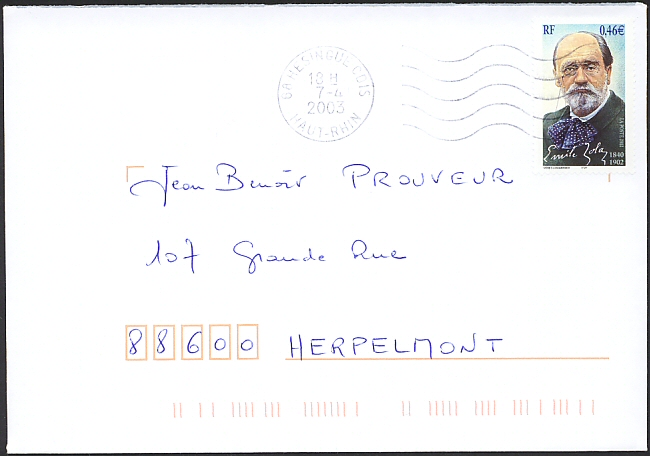 RF 0,46€
68 HESINGUE CDIS
18 H
7-4
2003
HAUT-RHIN
LA POSTE 2002
Emile Zola 1840
1902
Jean Benoît PROUVEUR
107 Grande Rue
88600 HERPELMONT